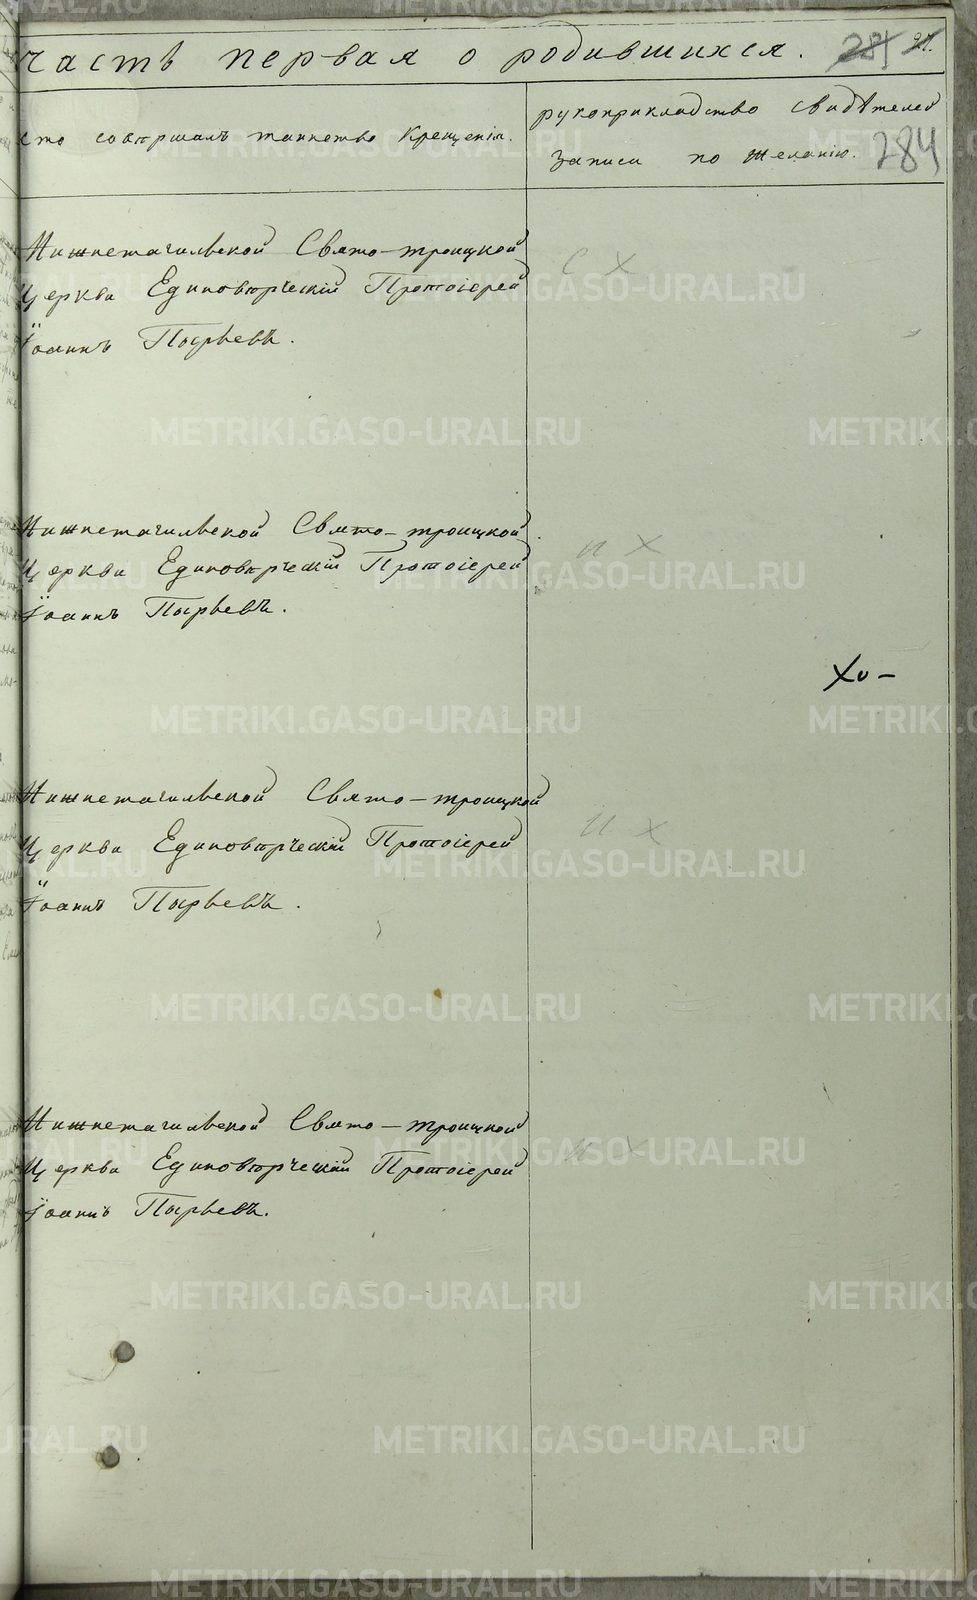 Часть первая о родившихся. 284 21.
Кто совершалъ таинство Крещенія.
рукоприкладство свидѣтелей
записи по желанію. 284
Нижнетагильской Свято-троицкой
Церкви Единовѣрческій Протоіерей
Іоаннъ Пырьевъ.
с х
Нижнетагильской Свято-троицкой
Церкви Единовѣрческій Протоіерей
Іоаннъ Пырьевъ.
и х
Нижнетагильской Свято-троицкой
Церкви Единовѣрческій Протоіерей
Іоаннъ Пырьевъ.
и х
Нижнетагильской Свято-троицкой
Церкви Единовѣрческій Протоіерей
Іоаннъ Пырьевъ.
и х
METRIKI.GASO-URAL.RU